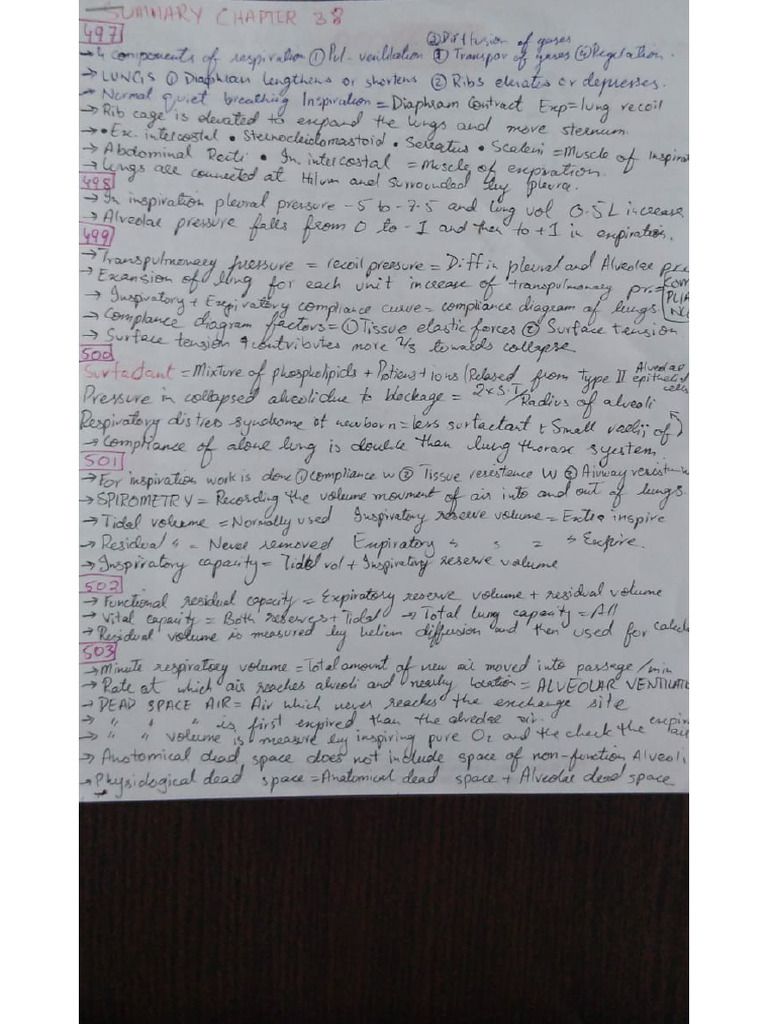 SUMMARY CHAPTER 38
497
② Diffusion of gases
→ 4 components of respiration ① Pul. ventilation ③ Transpor of gases ④ Regelation.
→ LUNGS ① Diaphram lengthens or shortens ② Ribs elevates or depresses.
→ Normal quiet breathing Inspiration = Diaphram Contract Exp = lung recoil
→ Rib cage is elevated to expand the lungs and move sternum.
→ • Ex. intercostal • Sternocleidomastoid • Serratus • Scaleni = Muscle of Inspirat
→ Abdominal Recti • In. intercostal = Muscle of expiration.
→ Lungs are connected at Hilum and surrounded by pleura.
498
→ In inspiration pleural pressure -5 to -7.5 and lung vol 0.5L increase
→ Alveolar pressure falls from 0 to -1 and then to +1 in expiration.
499
→ Transpulmonary pressure = recoil pressure = Diff in pleural and Alveolar pre
→ Exansion of lung for each unit increase of transpulmonary pr. = COM PLIA NC
→ Inspiratory + Expiratory compliance curve = compliance diagram of lungs
→ Compliance diagram factors = ① Tissue elastic forces ② Surface tension
→ Surface tension contributes more 2/3 towards collapse
500
Surfactant = Mixture of phospholipids + Protiens + ions (Relased from Type II Alveolar epithelial cells
Pressure in collapsed alveoli due to blockage = 2 x S.T / Radius of alveoli
Respiratory distress syndrome of newborn = less surfactant + Small radii of
→ Compliance of alone lung is double than lung thorax system
501
→ For inspiration work is done ① compliance w ② Tissue resistance W ③ Airway resistan
→ SPIROMETRY = Recording the volume movment of air into and out of lungs.
→ Tidal voleume = Normally used Inspiratory reserve volume = Extra inspire
→ Residual " = Never removed Expiratory " " = " Expire.
→ Inspiratory capacity = Tidal vol + Inspiratory reserve volume
502
→ Functional residual capacity = Expiratory reserve volume + residual volume
→ Vital capacity = Both reserves + Tidal → Total lung capacity = All
→ Residual volume is measured by helium diffusion and then used for calcula
503
→ Minute respiratory volume = Total amount of new air moved into passage / min
→ Rate at which air reaches alveoli and nearby location = ALVEOLAR VENTILATI
→ DEAD SPACE AIR = Air which never reaches the exchange site
→ " " " is first expired than the alveolar air.
→ " " volume is measure by inspiring pure O2 and the check the expir
→ Anatomical dead space does not include space of non-function Alveoli
→ Physiological dead space = Anatomical dead space + Alveolar dead space